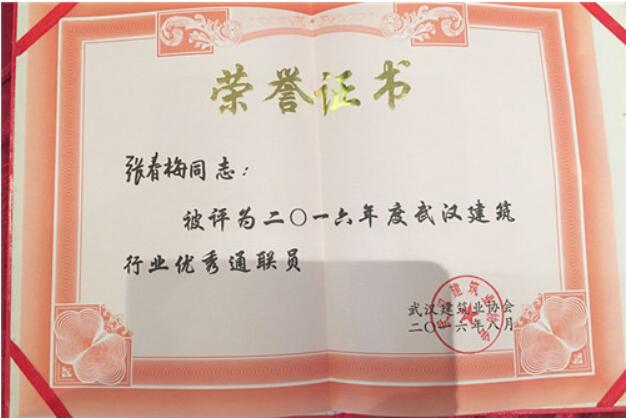 荣誉证书
张春梅同志：
被评为二〇一六年度武汉建筑
行业优秀通联员
武汉建筑业协会
二〇一六年八月